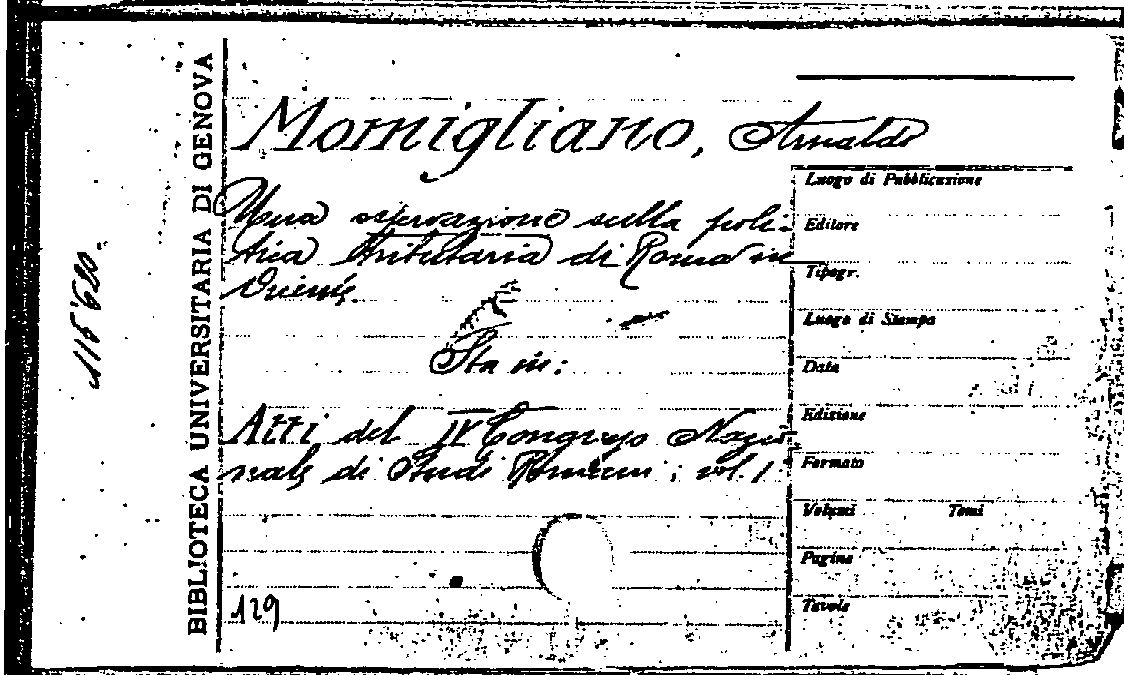 BIBLIOTECA UNIVERSITARIA DI GENOVA
115'620.
Momigliano, Arnaldo
Una osservazione sulla poli-
tica tributaria di Roma in
Oriente.
Sta in:
Atti del IV Congresso Nazio-
nale di Studi Romani; vol. 1º
129
Luogo di Pubblicazione
Editore
Tipogr.
Luogo di Stampa
Data
Edizione
Formato
Volumi Tomi
Pagine
Tavole